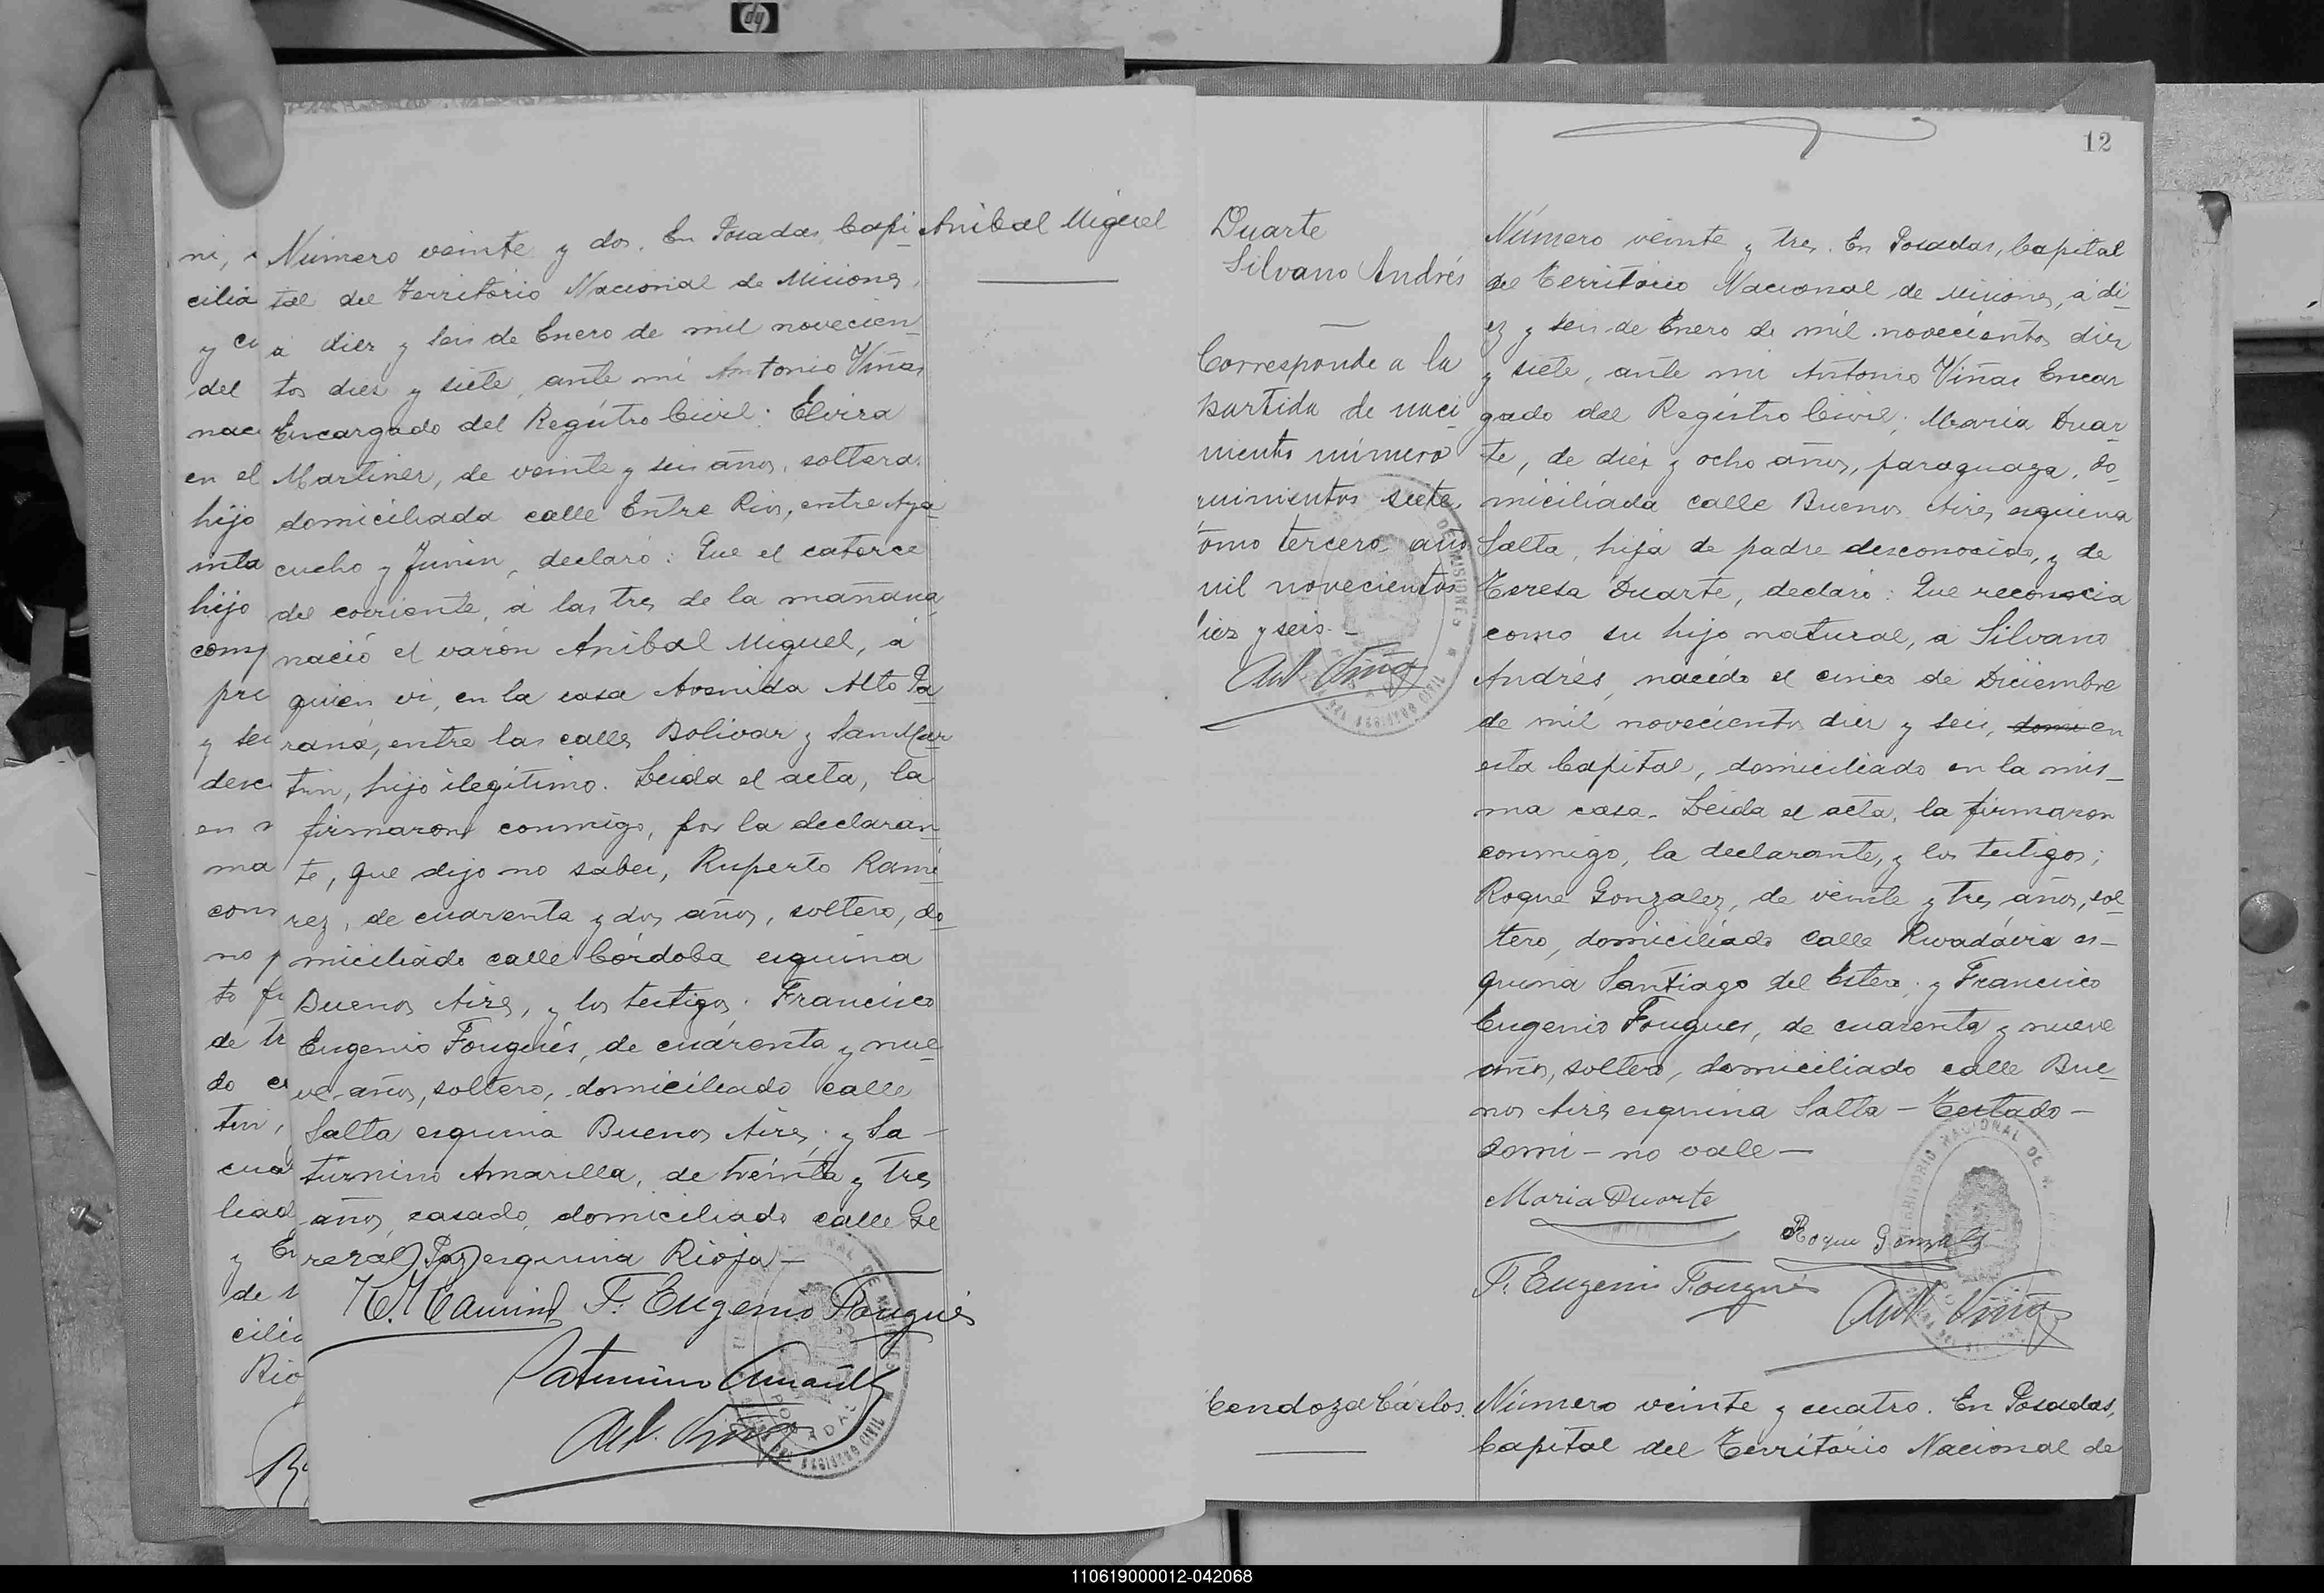 hp
Número veinte y dos. En Posadas, Capi-
tal del Territorio Nacional de Misiones,
a diez y seis de Enero de mil novecien-
tos diez y siete, ante mi Antonio Viñas
Encargado del Registro Civil: Elvira
Martinez, de veinte y seis años, soltera,
domiciliada calle Entre Rios, entre Aya-
cucho y Junin, declaró: Que el catorce
del corriente, á las tres de la mañana,
nació el varón Anibal Miguel, á
quien vi, en la casa Avenida Alto Pa-
raná, entre las calles Bolivar y San Mar-
tin, hijo ilegítimo. Leida el acta, la
firmaron conmigo, por la declaran-
te, que dijo no saber, Ruperto Rami-
rez, de cuarenta y dos años, soltero, do-
miciliado calle Córdoba esquina
Buenos Aires, y los testigos: Francisco
Eugenio Fougués, de cuarenta y nue-
ve años, soltero, domiciliado calle
Salta esquina Buenos Aires; y Sa-
turnino Amarilla, de treinta y tres
años, casado, domiciliado calle Ge-
neral Paz esquina Rioja—
F. Eugenio Fougués
Saturnino Amarilla
Ant. Viñas
Anibal Miguel
ni,
cilia
y
del
nac
en el
hijo
inta
hijo
comp
pre
y
desc
en
ma
com
no
to
de tr
do
tin,
cua
liad
y
de
cilia
Rio
12
Duarte
Silvano Andrés
Corresponde a la
partida de naci-
miento número
quinientos siete
tomo tercero año
mil novecientos
diez y seis.—
Ant. Viñas
Número veinte y tres. En Posadas, Capital
del Territorio Nacional de Misiones, á di-
ez y seis de Enero de mil novecientos diez
y siete, ante mi Antonio Viñas Encar-
gado del Registro Civil; Maria Duar-
te, de diez y ocho años, paraguaya, do-
miciliada calle Buenos Aires esquina
Salta, hija de padre desconocido, y de
Teresa Duarte, declaró: Que reconocia
como su hijo natural, a Silvano
Andrés, nacido el cinco de Diciembre
de mil novecientos diez y seis, domi en
esta Capital, domiciliado en la mis-
ma casa. Leida el acta, la firmaron
conmigo, la declarante, y los testigos;
Roque Gonzalez, de veinte y tres años, sol-
tero, domiciliado calle Rivadavia es-
quina Santiago del Estero; y Francisco
Eugenio Fougues, de cuarenta y nueve
años, soltero, domiciliado calle Bue-
nos Aires esquina Salta—Testado—
domi—no vale—
Maria Duarte
Roque Gonzalez
F. Eugenio Fougués
Ant. Viñas
Mendoza Cárlos.
Número veinte y cuatro. En Posadas,
Capital del Territorio Nacional de
110619000012-042068